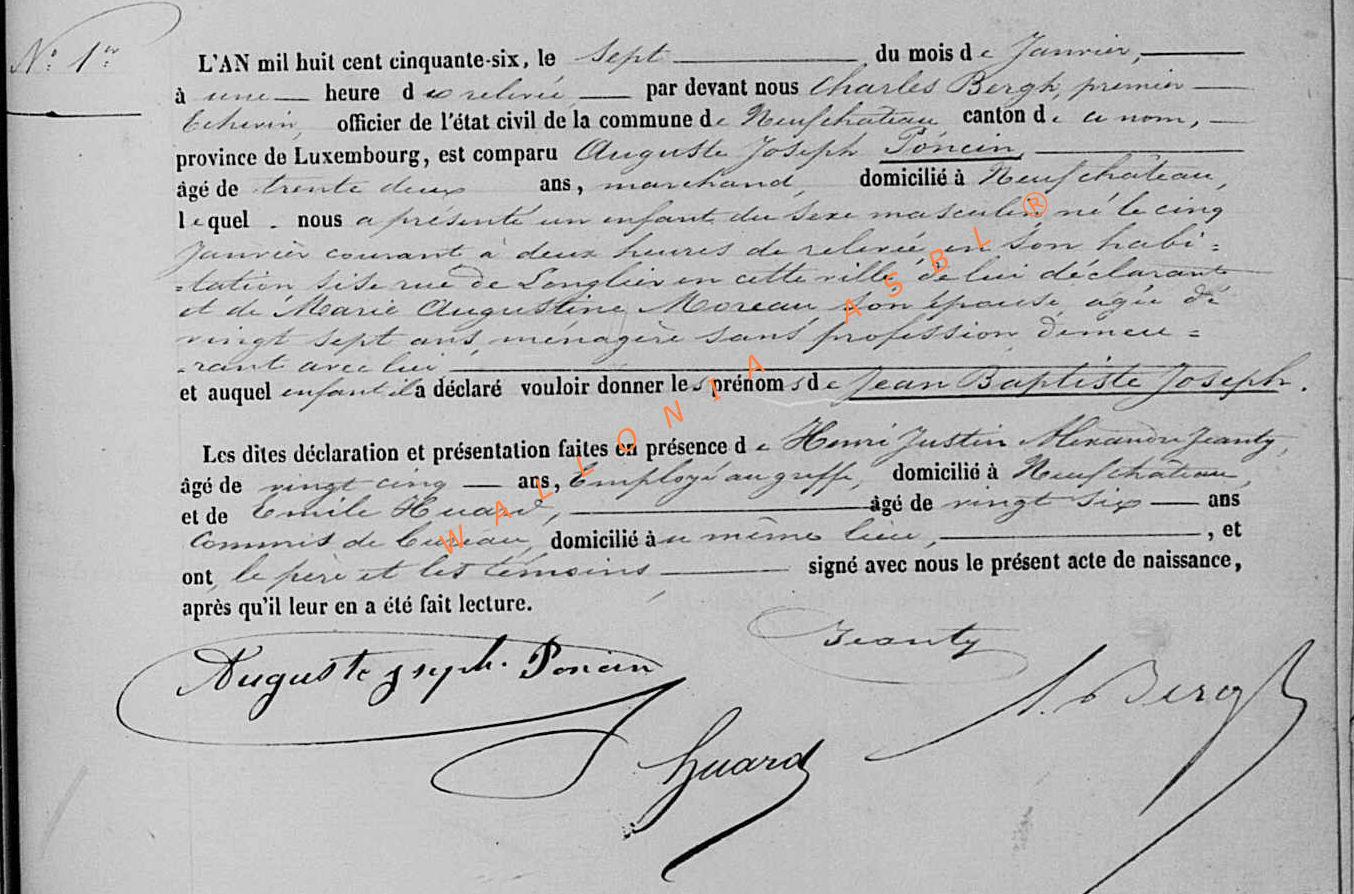 N° 1er
L'AN mil huit cent cinquante-six, le sept du mois de Janvier,
à une heure de relevée, par devant nous Charles Bergh, premier
Echevin, officier de l'état civil de la commune de Neufchâteau canton de ce nom,
province de Luxembourg, est comparu Auguste Joseph Poncin,
âgé de trente deux ans, marchand, domicilié à Neufchâteau,
lequel nous a présenté un enfant du sexe masculin né le cinq
Janvier courant à deux heures de relevée en son habi=
=tation sise rue de Longlier en cette ville, de lui déclarant
et de Marie Augustine Moreau son épouse, agée de
vingt sept ans, ménagère sans profession demeu=
=rant avec lui
et auquel enfant il a déclaré vouloir donner les prénoms de Jean Baptiste Joseph.
Les dites déclaration et présentation faites en présence de Henri Justin Alexandre Jeanty,
âgé de vingt cinq ans, Employé au greffe, domicilié à Neufchâteau,
et de Emile Huard, âgé de vingt six ans
Commis de bureau, domicilié au même lieu, , et
ont, le père et les témoins signé avec nous le présent acte de naissance,
après qu'il leur en a été fait lecture.
Jeanty
Auguste Joseph. Poncin
Bergh
Huard
WALLONIA ASBL ®